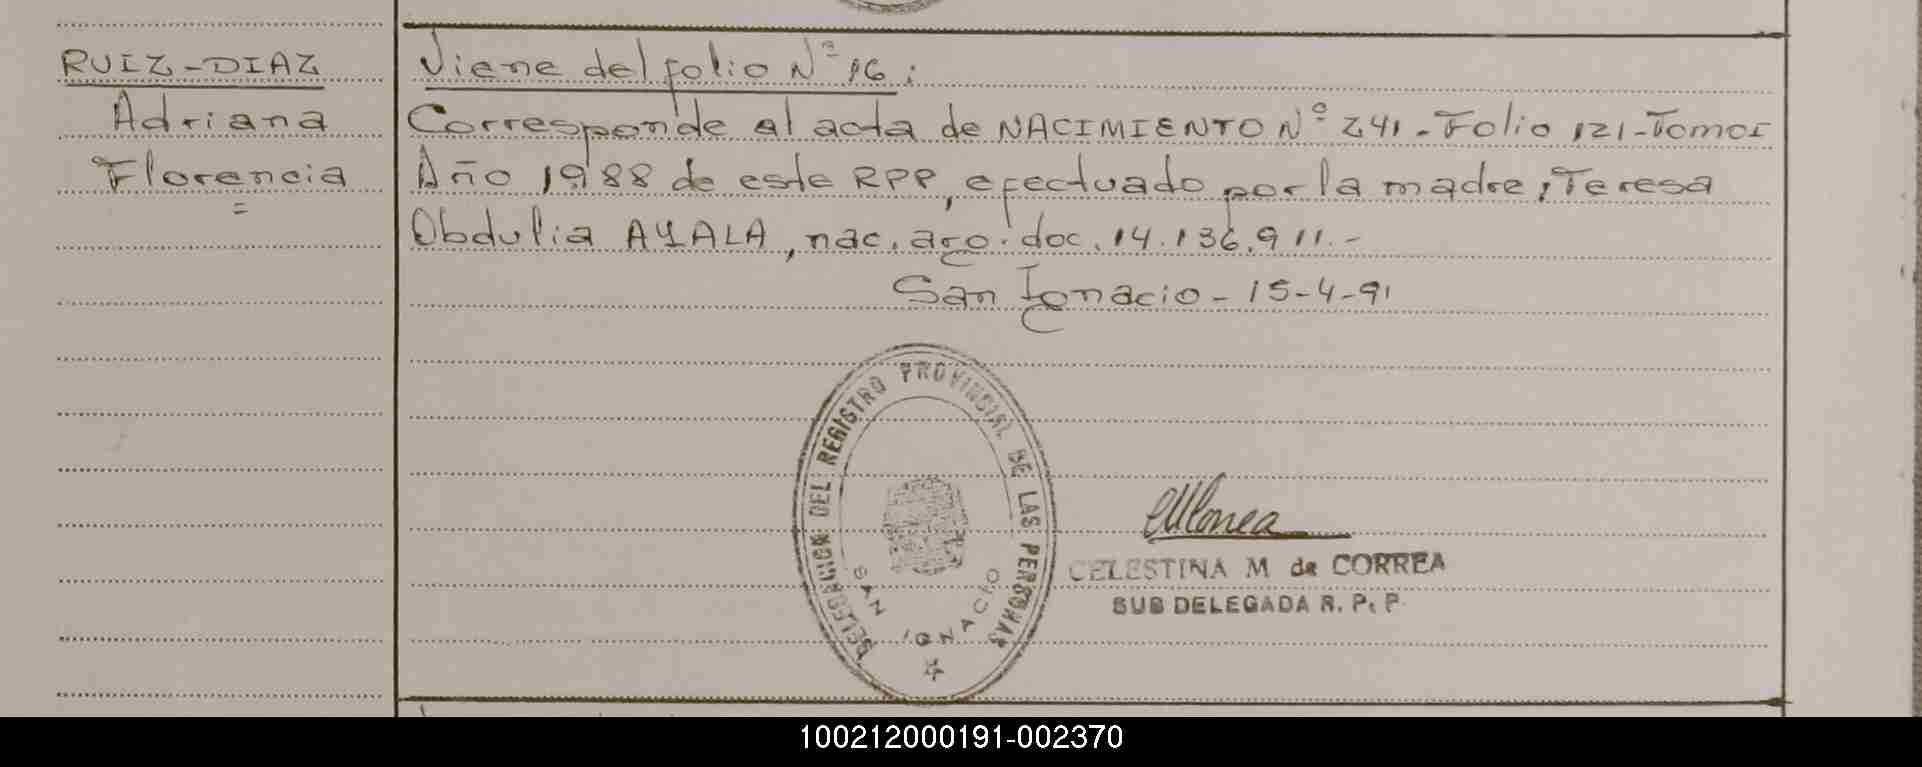 RUIZ-DIAZ
Adriana
Florencia
=
Viene del folio Nº 16:
Corresponde al acta de NACIMIENTO Nº 241-Folio 121-Tomo I
Año 1988 de este RPP, efectuado por la madre, Teresa
Obdulia AYALA, nac. arg. doc. 14.136.911.-
San Ignacio-15-4-91
DELEGACION DEL REGISTRO PROVINCIAL DE LAS PERSONAS
SAN IGNACIO
CELESTINA M de CORREA
SUB DELEGADA R. P. P.
100212000191-002370